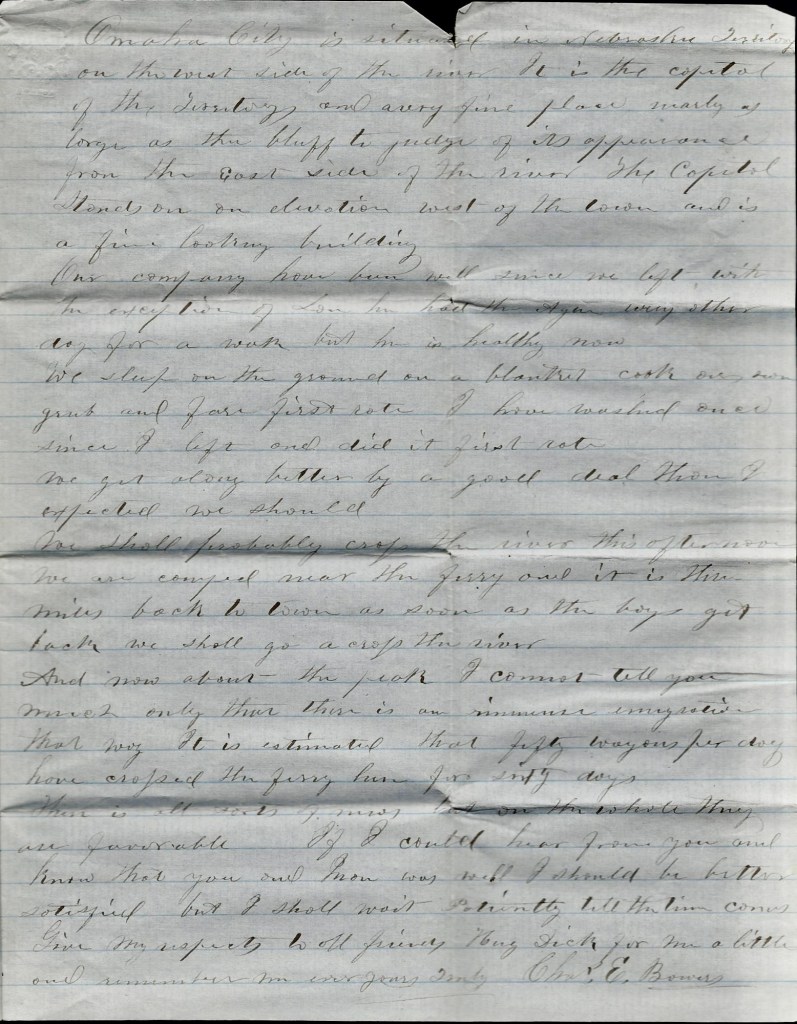 Omaha City is situated in Nebraska Territory
on the west side of the river It is the capital
of the Territory and a very fine place nearly as
large as the bluff to judge of its appearance
from the East side of the river The Capitol
stands on an elevation west of the town and is
a fine looking building
Our company have been well since we left with
the exception of Lon he had the Ague every other
day for a weak but he is healthy now
We sleep on the ground on a blanket cook our own
grub and fare first rate I have washed once
since I left and did it first rate
We get along better by a good deal than I
expected we should
We shall probably cross the river this afternoon
We are camped near the ferry and it is three
miles back to town as soon as the boys get
back we shall go a cross the river
And now about the peak I cannot tell you
much only that there is an immense emigration
that way It is estimated that fifty wagons per day
have crossed the ferry here for sixty days
There is all sorts of news but on the whole they
are favorable If I could hear from you and
know that you and was well I should be better
satisfied but I shall wait patiently till the time comes
Give my respects to all friends Hug Dick for me a little
and remember me ever yours Truly Chas. E. Bowers